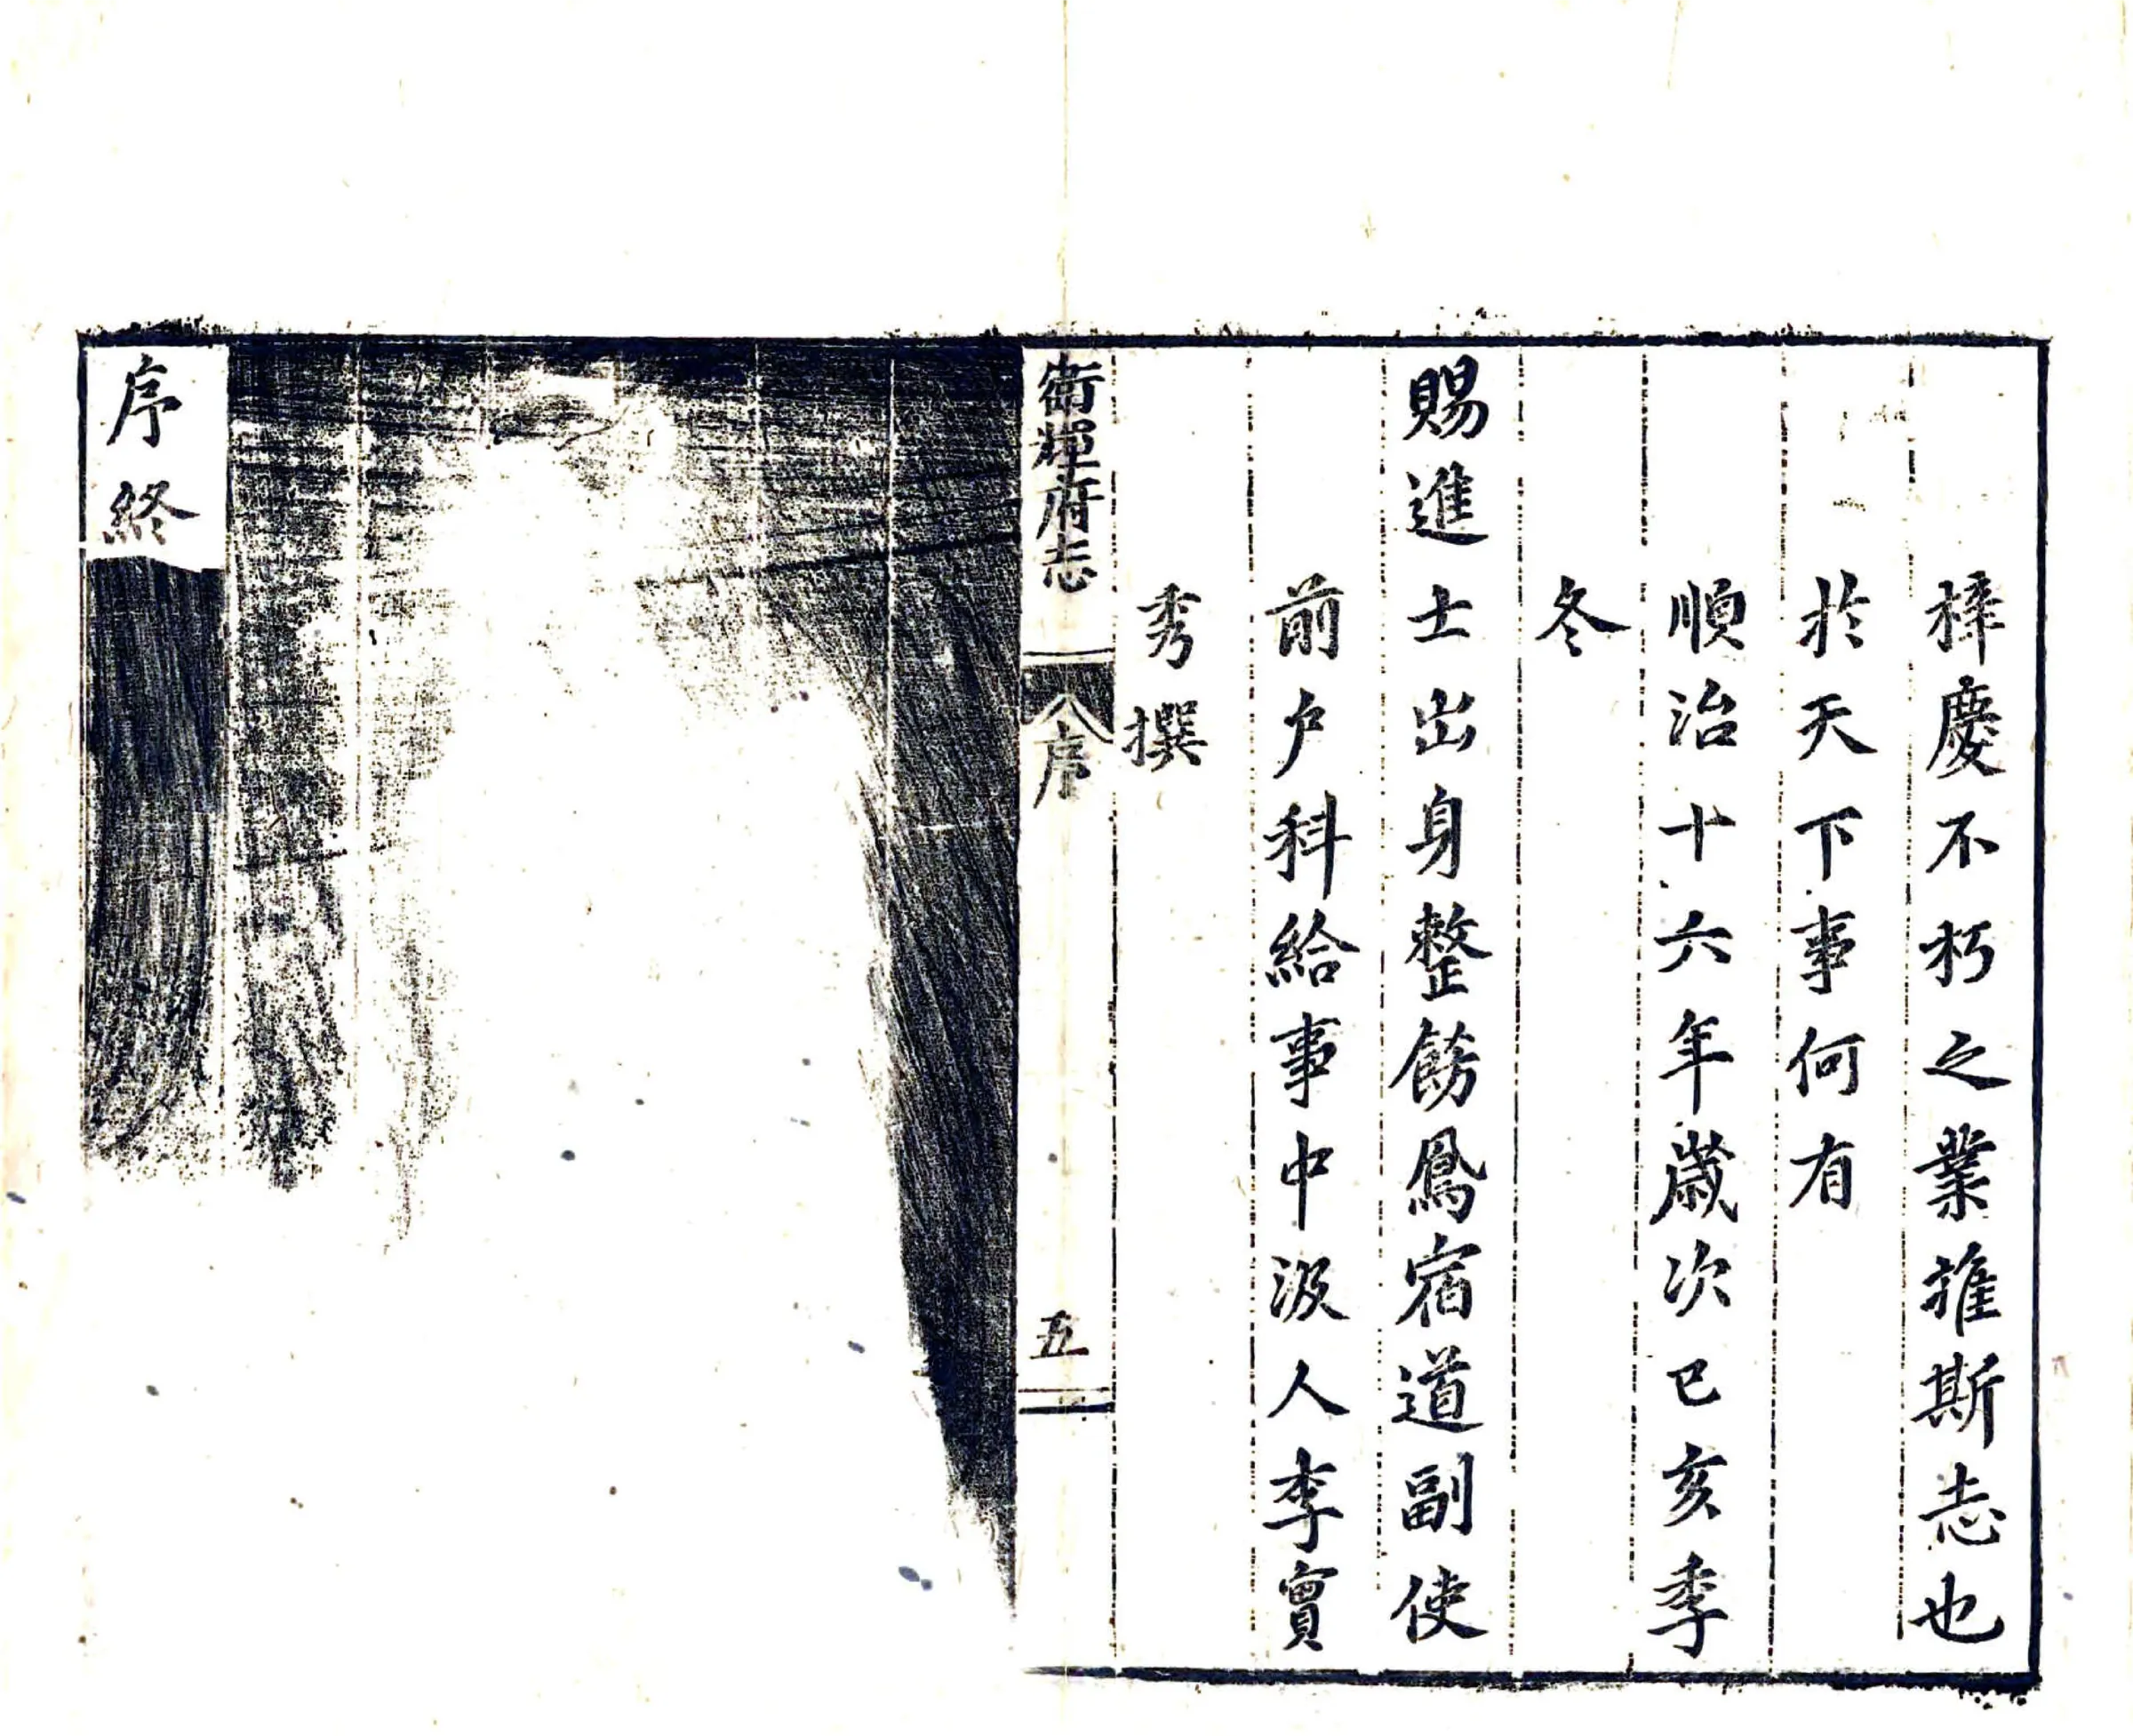 梓慶不朽之業推斯志也
於天下事何有
順治十六年歲次己亥季
冬
賜進士出身整飭鳳宿道副使
前户科給事中汲人李實
秀撰
衛輝府志
序
五
序終